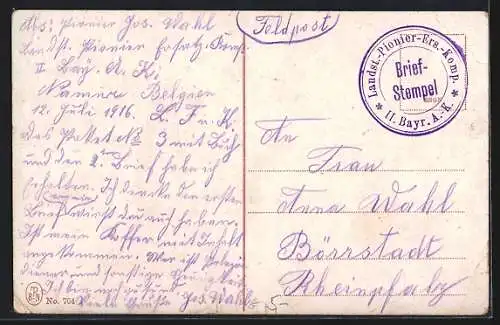 Abs: Pionier Jos. Wahl
Landst. Pionier Ersatz-Komp.
II Bay. A. K.
Namur Belgien
12. Juli 1916. L. F. u. K.
Das Paket No 3 mit Buch
und den 2. Brief habe ich
Erhalten. Ich denke den ersten
Brief wirst du auch haben.
Ist mein Koffer mit Inhalt
angekommen. Wer ist
diener und sonstige
Ich bin noch gesund.
Viele Grüße Jos. Wahl
No. 704
Feldpost
Landst.-Pionier-Ers.-Komp.
Brief-
Stempel
* II. Bayr. A.-K. *
An
Frau
Anna Wahl
Börrstadt
Rheinpfalz
5-